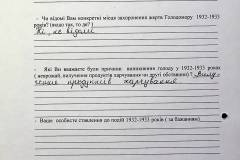 - Чи відомі Вам конкретні місця захоронення жертв Голодомору 1932-1933
років? (якщо так, то де?)
Ні, не відомі
- Які Ви вважаєте були причини виникнення голоду у 1932-1933 роках
( неврожай, вилучення продуктів харчування чи другі обставини)? Вилу-
чення продуктів харчування
- Ваше особисте ставлення до подій 1932-1933 років ( за бажанням)